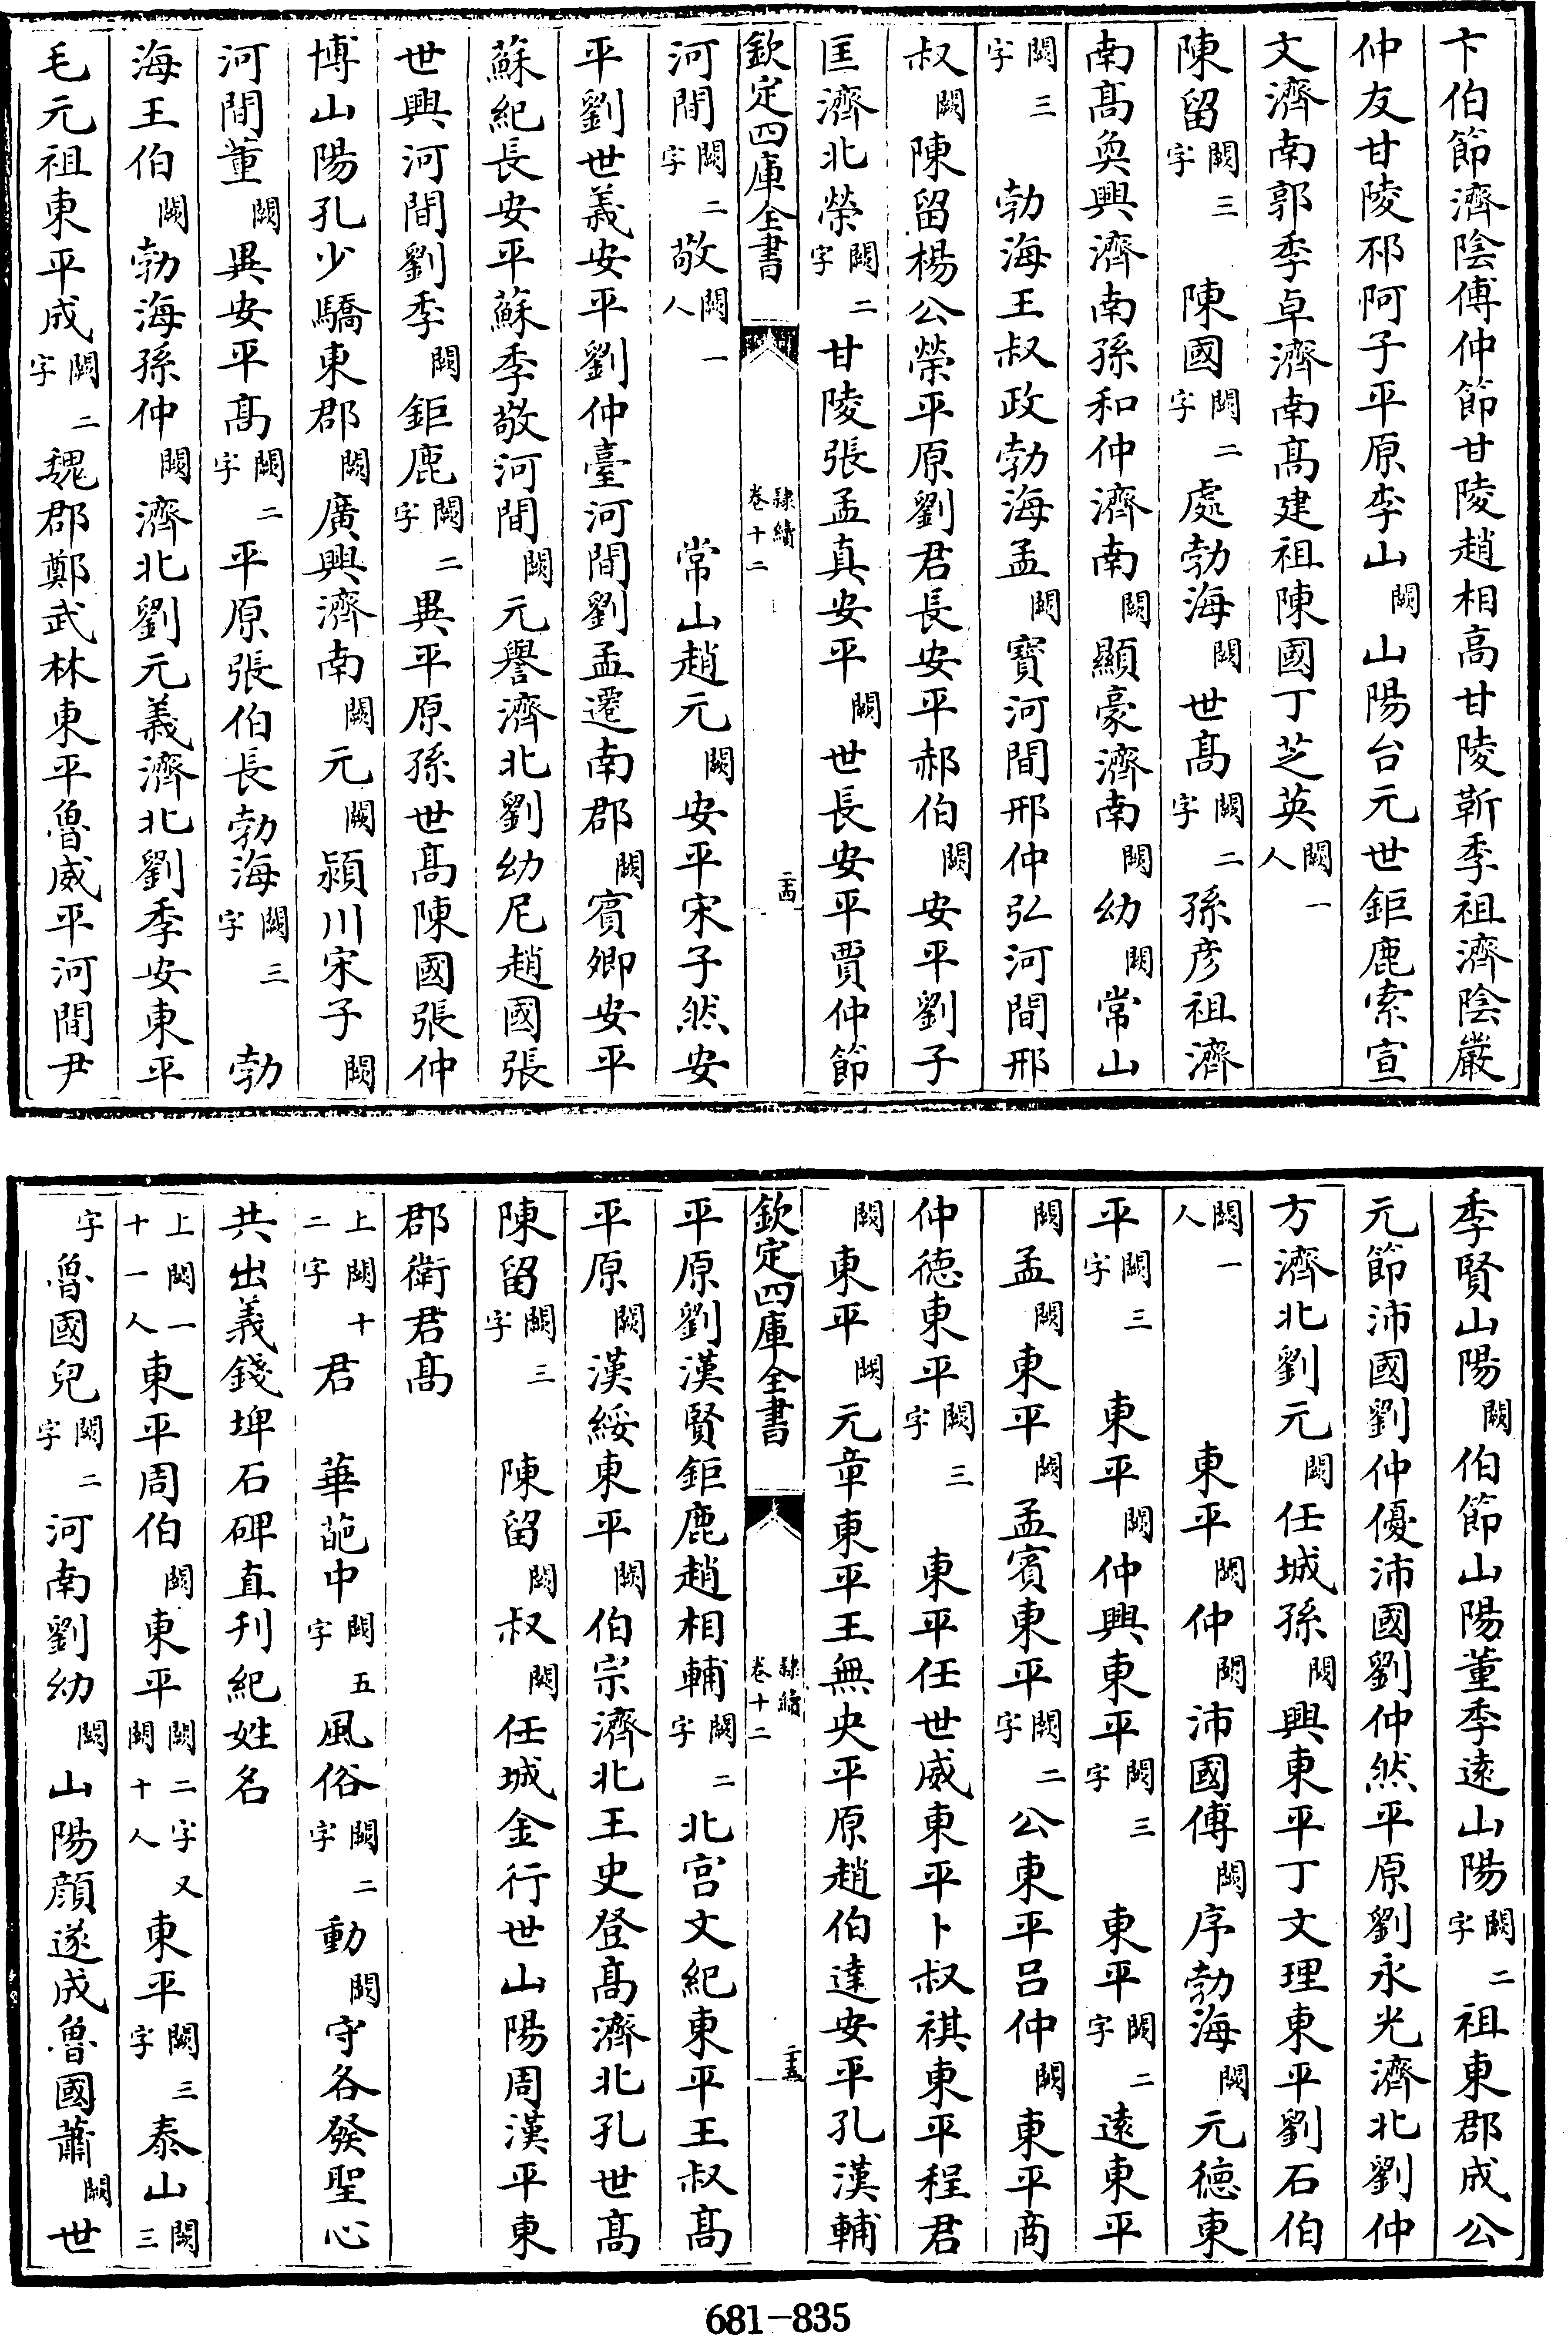 卞伯節濟陰傅仲節甘陵趙相高甘陵靳季祖濟陰嚴
仲友甘陵邳阿子平原李山闕山陽台元世鉅鹿索宣
文濟南郭季卓濟南髙建祖陳國丁芝英闕一人
陳留闕三字陳國闕二字處勃海闕世髙闕二字孫彦祖濟
南髙奐興濟南孫和仲濟南闕顯豪濟南闕幼闕常山
闕三字勃海王叔政勃海孟闕寶河間邢仲弘河間邢
叔闕陳留楊公榮平原劉君長安平郝伯闕安平劉子
匡濟北榮闕二字甘陵張孟真安平闕世長安平賈仲節
欽定四庫全書
隸續
卷十二
二十四
河間闕二字敬闕一人常山趙元闕安平宋子然安
平劉世義安平劉仲臺河間劉孟遷南郡闕賓卿安平
蘇紀長安平蘇季敬河間闕元譽濟北劉幼尼趙國張
世興河間劉季闕鉅鹿闕二字異平原孫世髙陳國張仲
博山陽孔少驕東郡闕廣興濟南闕元闕潁川宋子闕
河間董闕異安平髙闕二字平原張伯長勃海闕三字勃
海王伯闕勃海孫仲闕濟北劉元義濟北劉季安東平
毛元祖東平成闕二字魏郡鄭武林東平魯威平河間尹
季賢山陽闕伯節山陽董季遠山陽闕二字祖東郡成公
元節沛國劉仲優沛國劉仲然平原劉永光濟北劉仲
方濟北劉元闕任城孫闕興東平丁文理東平劉石伯
闕一人東平闕仲闕沛國傅闕序勃海闕元德東
平闕三字東平闕仲興東平闕三字東平闕二字遠東平
闕孟闕東平闕孟賓東平闕二字公東平呂仲闕東平商
仲德東平闕三字東平任世威東平卜叔祺東平程君
闕東平闕元章東平王無央平原趙伯達安平孔漢輔
欽定四庫全書
隸續
卷十二
二十五
平原劉漢賢鉅鹿趙相輔闕二字北宫文紀東平王叔髙
平原闕漢綏東平闕伯宗濟北王史登髙濟北孔世髙
陳留闕三字陳留闕叔闕任城金行世山陽周漢平東
郡衛君髙
上闕十二字君華葩中闕五字風俗闕二字動闕守各發聖心
共出義錢埤石碑直刋紀姓名
上闕一十一人東平周伯闕東平闕二字又闕十人東平闕三字泰山闕三
字魯國兒闕二字河南劉幼闕山陽顔遂成魯國蕭闕世
681-835